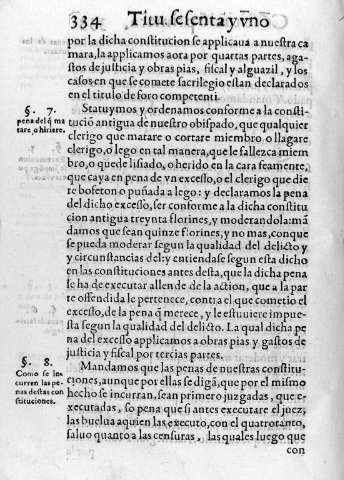 334 Titu. sesenta y vno
por la dicha constitucion se applicaua a nuestra ca
mara, la applicamos aora por quartas partes, aga-
stos de justicia y obras pias, fiscal y alguazil, y los
casos en que se comete sacrilegio estan declarados
en el titulo de foro competenti.
§. 7.
pena del q̃ ma
tare, o hiriere.
Statuymos y ordenamos conforme a la consti-
tuciõ antigua de nuestro obispado, que qualquier
clerigo que matare o cortare miembro o llagare
clerigo, o lego en tal manera, que le fallezca miem
bro, o quede lisiado, o herido en la cara feamente,
que cayа en pena de vn excesso, o el clerigo que die
re bofeton o puñada a lego: y declaramos la pena
del dicho excesso, ser conforme a la dicha constitu
cion antigua treynta florines, y moderandola: mã
damos que sean quinze florines, y no mas, conque
se pueda moderar segun la qualidad del delicto y
y circunstancias del: y entiendase segun esta dicho
en las constituciones antes desta, que la dicha pena
se ha de executar allende de la action, que a la par
te offendida le pertenece, contra el que cometio el
excesso, de la pena q̃ merece, y le estuuiere impue-
sta segun la qualidad del delicto. La qual dicha pe
na del excesso applicamos a obras pias y gastos de
justicia y fiscal por tercias partes.
§. 8.
Como se in
curren las pe
nas destas con
stituciones.
Mandamos que las penas de nuestras constitu-
ciones, aunque por ellas se digã, que por el mismo
hecho se incurran, sean primero juzgadas, que e-
xecutadas, so pena que si antes executare el juez,
las buelua aquien las executo, con el quatrotanto,
saluo quanto a las censuras, las quales luego que
con